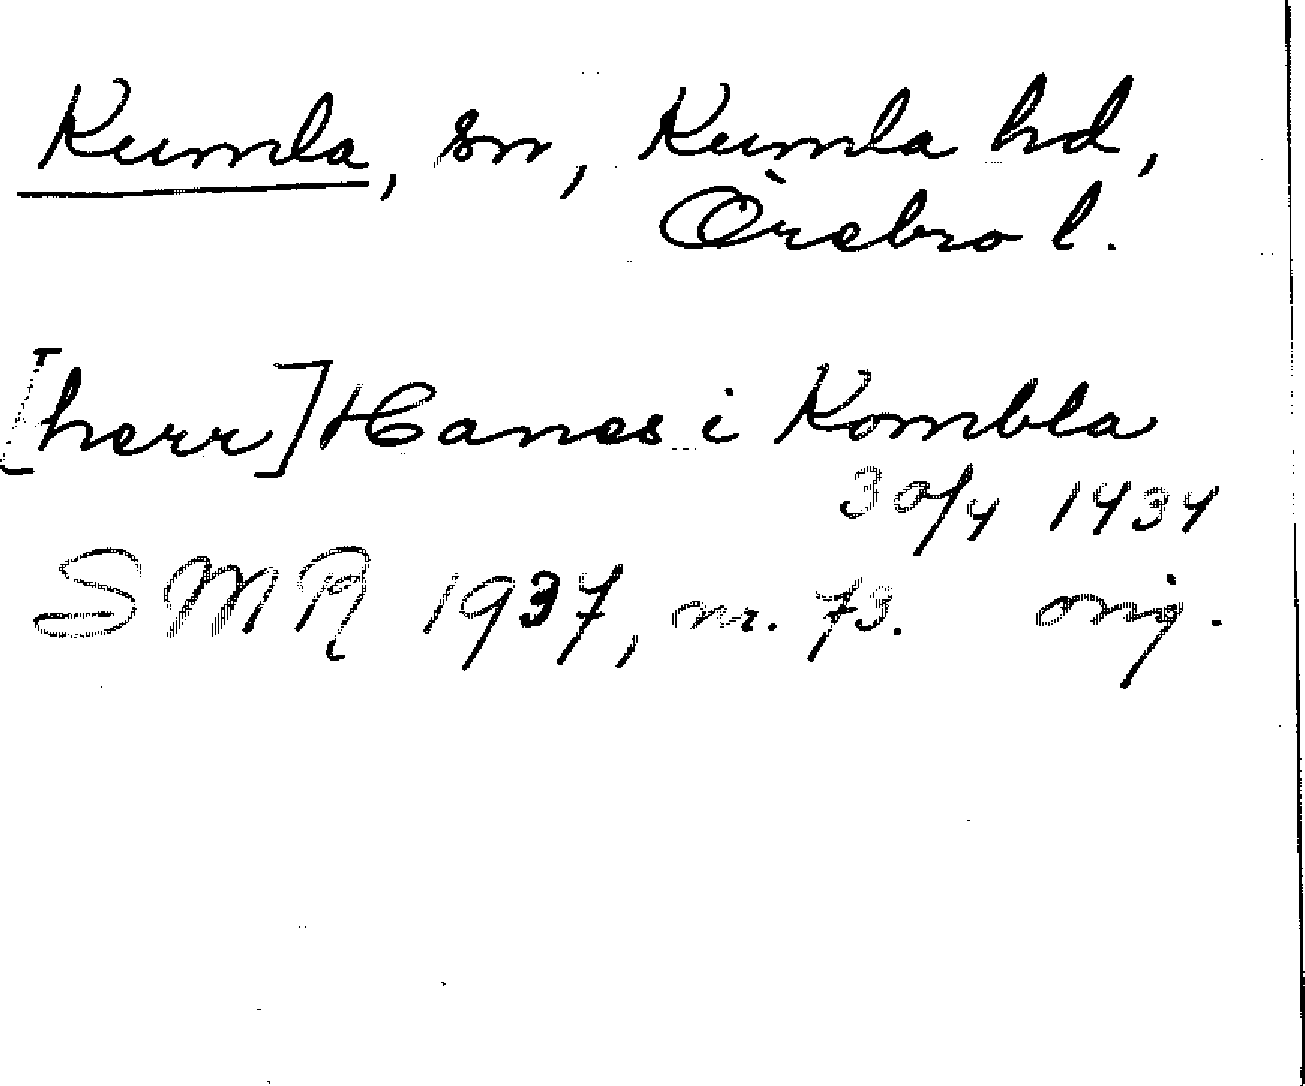 Kumla, sn, Kumla hd,
Örebro l.
[herr] Hanes i Kombla
30/4 1434
SMR 1937, nr. 73. orig.